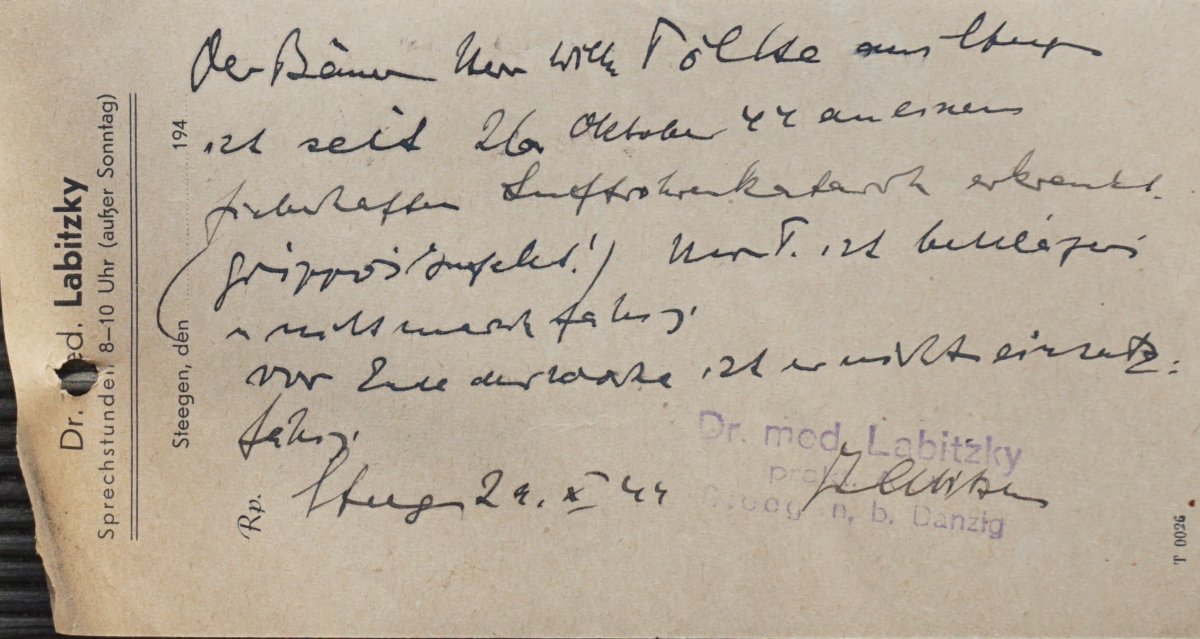 Dr. med. Labitzky
Sprechstunden 8–10 Uhr (außer Sonntag)
Steegen, den 194
Rp.
Der Bäcker Herr Wilh. Tölke aus Steegen
ist seit 26. Oktober 44 an einem
fieberhaften Luftröhrenkatarrh erkrankt.
(grippöser Infekt!) Herr T. ist bettlägerig
u nicht marschfähig.
vor Ende der Woche ist er nicht einsatz-
fähig.
Steegen 29. X 44
Dr. med. Labitzky
prakt.
Steegen, b. Danzig
T 0026